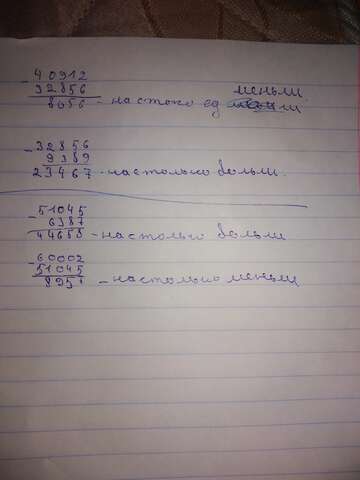 меньли
- 40912
32856
8056 - настоко ед ли
- 32856
9389
23467 - настолько больли.
- 51045
6387
44658 - настолько больли
- 60002
51045
8957 - настолько меньли